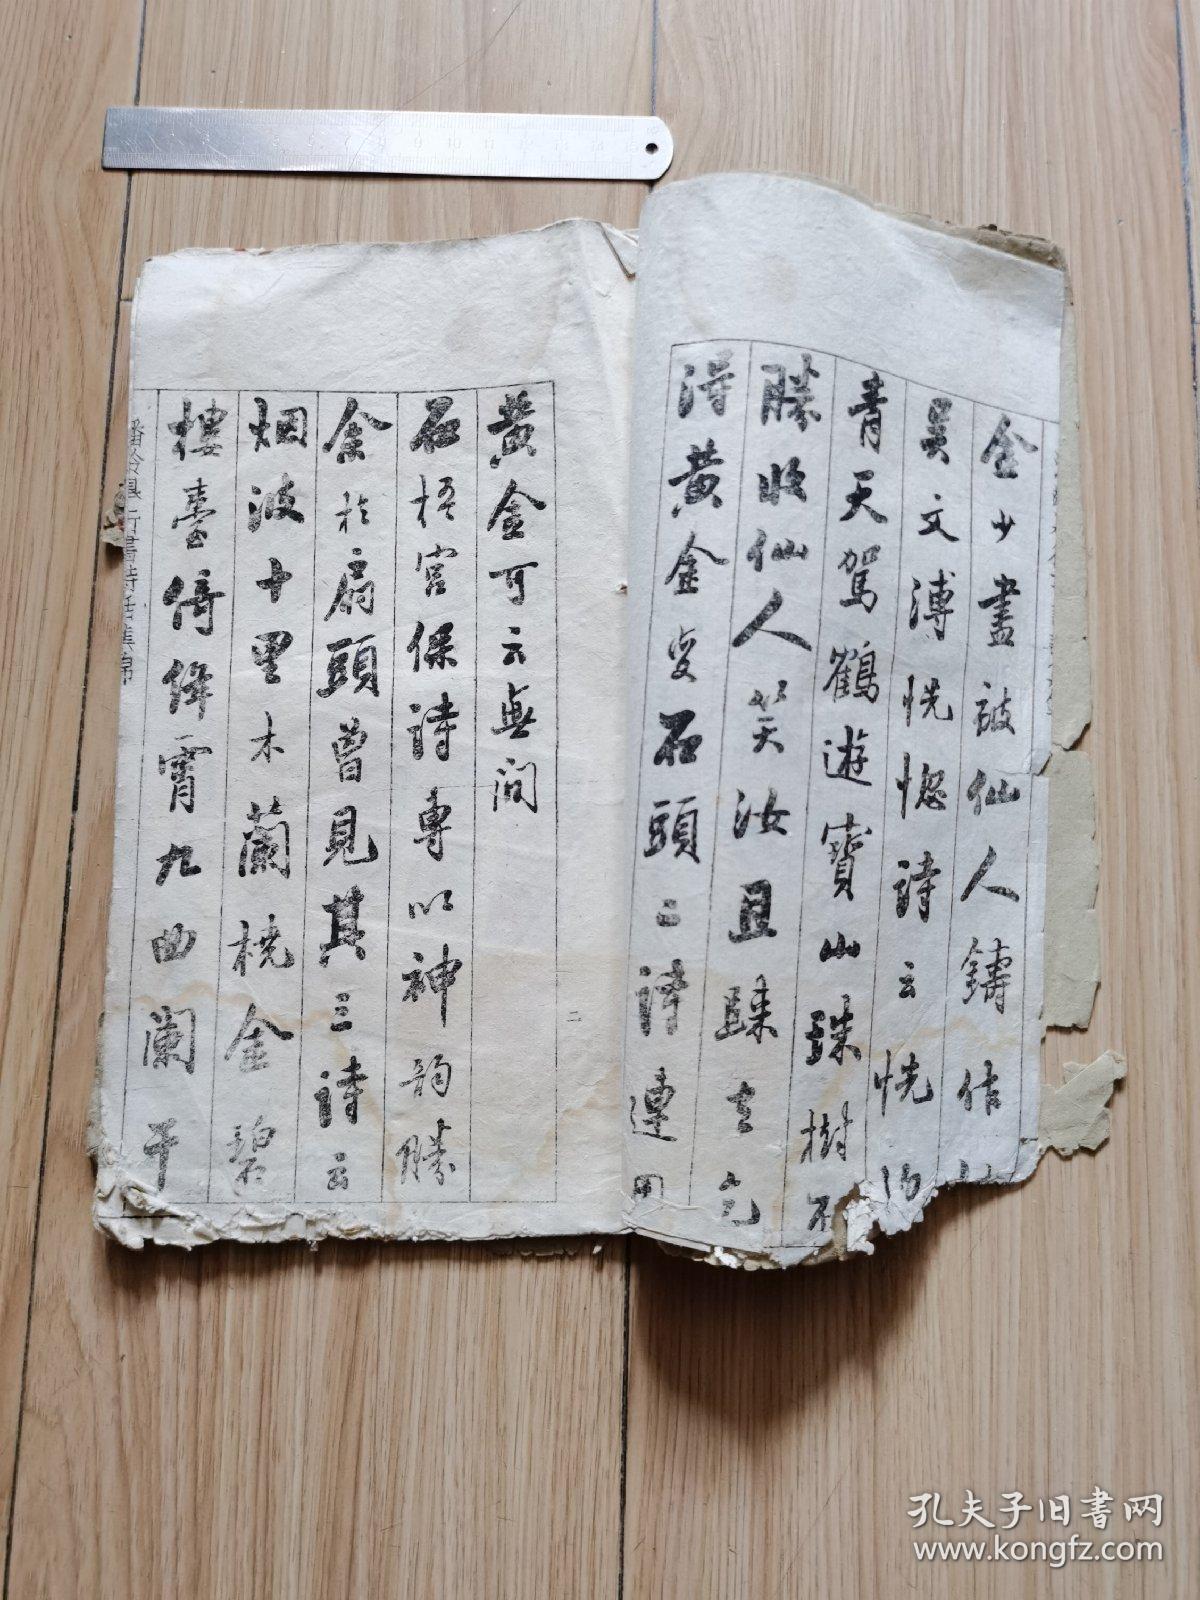 金少盡被仙人鑄佶
吳文溥恍惚詩云恍
青天駕鶴遊寶山珠樹不
勝收仙人笑汝且歸去乞
得黃金變石頭二詩連用
黃金可云無間
石梧宮保詩專以神韵勝
余於扇頭曾見其三詩云
烟波十里木蘭桡金碧
樓臺倚絳霄九曲闌干
二
行書詩話集錦
孔夫子旧书网
www.kongfz.com